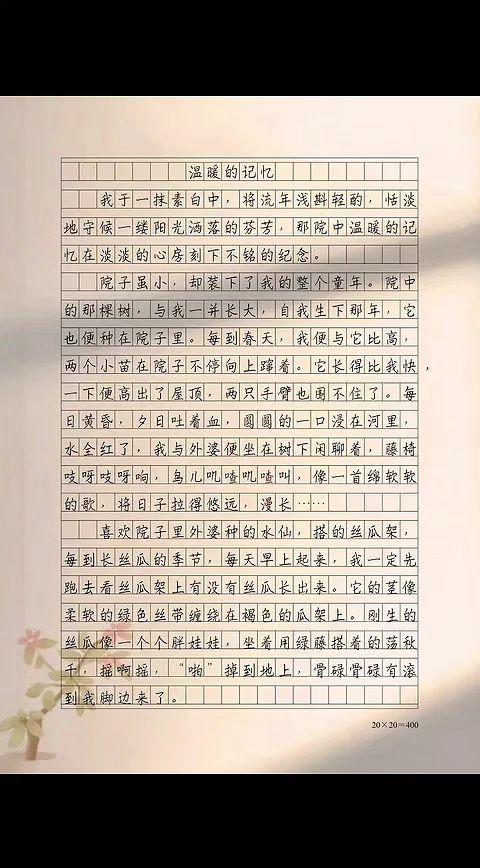 温暖的记忆
我于一抹素白中，将流年浅斟轻酌，恬淡
地守候一缕阳光洒落的芬芳，那院中温暖的记
忆在淡淡的心房刻下不铭的纪念。
院子虽小，却装下了我的整个童年。院中
的那棵树，与我一并长大，自我生下那年，它
也便种在院子里。每到春天，我便与它比高，
两个小苗在院子不停向上蹿着。它长得比我快，
一下便高出了屋顶，两只手臂也围不住了。每
日黄昏，夕日吐着血，圆圆的一口浸在河里，
水全红了，我与外婆便坐在树下闲聊着，藤椅
吱呀吱呀响，鸟儿叽喳叽喳叫，像一首绵软软
的歌，将日子拉得悠远，漫长……
喜欢院子里外婆种的水仙，搭的丝瓜架，
每到长丝瓜的季节，每天早上起来，我一定先
跑去看丝瓜架上有没有丝瓜长出来。它的茎像
柔软的绿色丝带缠绕在褐色的瓜架上。刚生的
丝瓜像一个个胖娃娃，坐着用绿藤搭着的荡秋
千，摇啊摇，“啪”掉到地上，骨碌骨碌有滚
到我脚边来了。
20×20=400